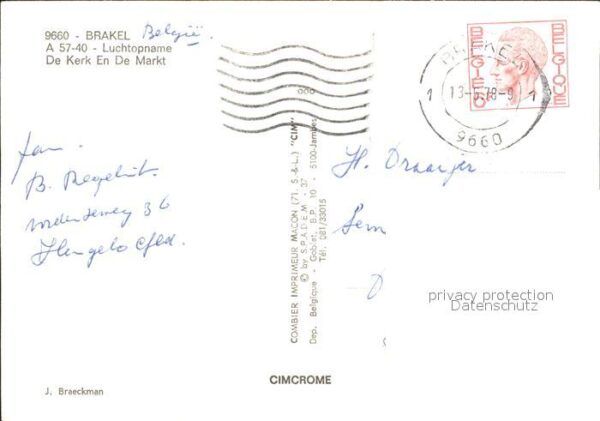 9660 - BRAKEL België.
A 57-40 - Luchtopname
De Kerk En De Markt
BELGIE
BELGIQUE
BRAKEL
1 13-5.78-9 1
9660
Fam.
B.
36
Hengelo
COMBIER IMPRIMEUR MACON (71. S.-&-L.) "CIM"
© by S.P.A.D.E.M. - 37
Dep. Belgique - Goblet, B.P. 10 - 5100-Jambes
Tél. 081/33015
H.
D
privacy protection
Datenschutz
CIMCROME
J. Braeckman